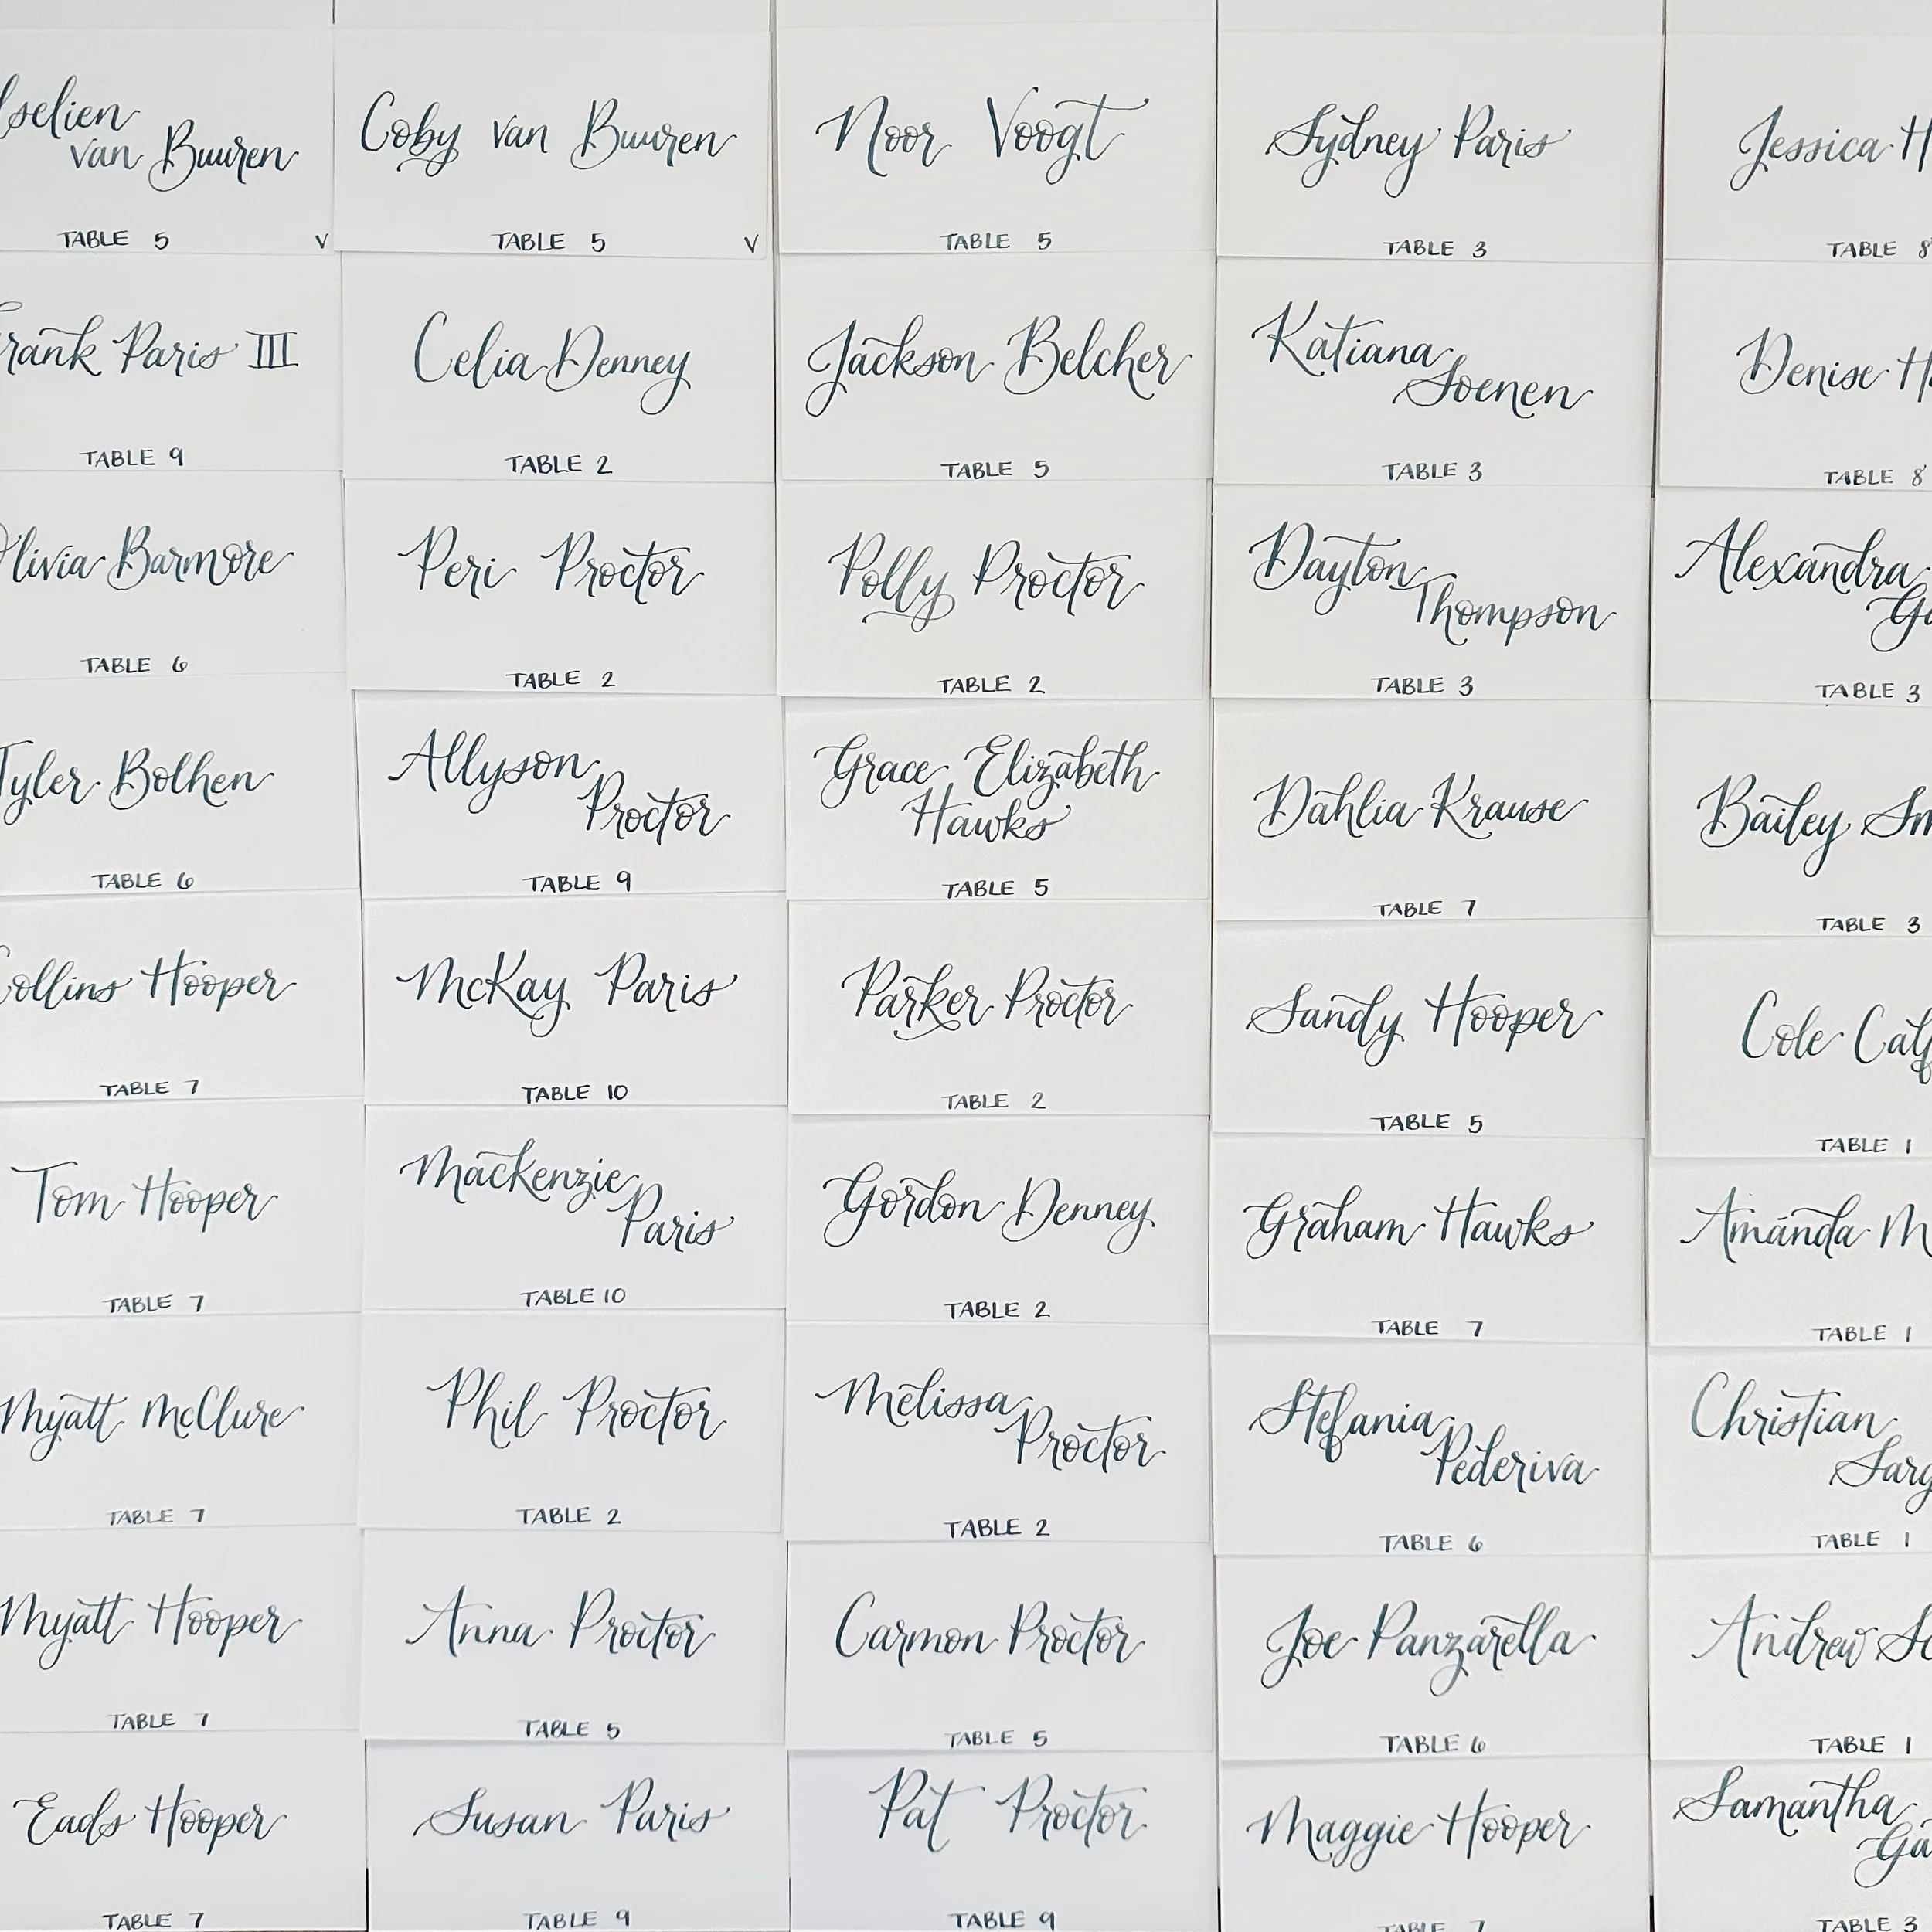 van Buuren
TABLE 5 V
Coby van Buuren
TABLE 5 V
Noor Voogt
TABLE 5
Sydney Paris
TABLE 3
Jessica
TABLE 8
Paris III
TABLE 9
Celia Denney
TABLE 2
Jackson Belcher
TABLE 5
Katiana
Soenen
TABLE 3
Denise
TABLE 8
Olivia Barmore
TABLE 6
Peri Proctor
TABLE 2
Polly Proctor
TABLE 2
Dayton
Thompson
TABLE 3
Alexandra
TABLE 3
Tyler Bolhen
TABLE 6
Allyson
Proctor
TABLE 9
Grace Elizabeth
Hawks
TABLE 5
Dahlia Krause
TABLE 7
Bailey
TABLE 3
Collins Hooper
TABLE 7
McKay Paris
TABLE 10
Parker Proctor
TABLE 2
Sandy Hooper
TABLE 5
Cole
TABLE 1
Tom Hooper
TABLE 7
Mackenzie
Paris
TABLE 10
Gordon Denney
TABLE 2
Graham Hawks
TABLE 7
Amanda
TABLE 1
Myatt McClure
TABLE 7
Phil Proctor
TABLE 2
Melissa
Proctor
TABLE 2
Stefania
Pederiva
TABLE 6
Christian
TABLE 1
Myatt Hooper
TABLE 7
Anna Proctor
TABLE 5
Carmon Proctor
TABLE 5
Joe Panzarella
TABLE 6
Andrew
TABLE 1
Eads Hooper
TABLE 7
Susan Paris
TABLE 9
Pat Proctor
TABLE 9
Maggie Hooper
TABLE 7
Samantha
TABLE 3